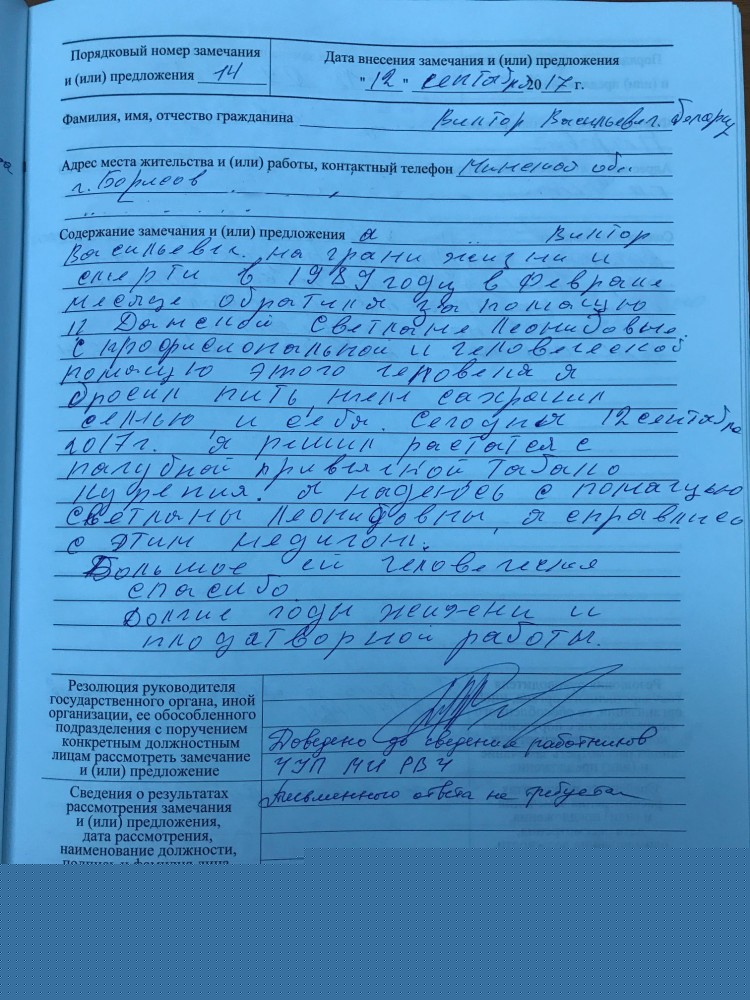 Порядковый номер замечания
и (или) предложения 14
Дата внесения замечания и (или) предложения
"12" сентября 2017 г.
Фамилия, имя, отчество гражданина Виктор Васильевич
Адрес места жительства и (или) работы, контактный телефон Минской обл
г. Борисов
Содержание замечания и (или) предложения Я Виктор
Васильевич на грани жизни и
смерти в 1989 году в феврале
месяце обратился за помощю
к Данской Светлане Леонидовне.
С профисиональной и человеческой
помощю этого человека я
бросил пить, чем сахранил
семью и себя. Сегодня 12 сентября
2017 г. я решил растатся с
пагубной привычкой табако
курения. Я надеюсь с помощью
Светланы Леонидовны, я справлюсь
с этим недугом.
Большое ей человеческая
спасибо
Долгие годы жизни и
плодатворной работы.
Резолюция руководителя
государственного органа, иной
организации, ее обособленного
подразделения с поручением
конкретным должностным
лицам рассмотреть замечание
и (или) предложение
Доведено до сведения работников
ЧУП МЦ РВЧ
Сведения о результатах
рассмотрения замечания
и (или) предложения,
дата рассмотрения,
наименование должности,
Письменного ответа не требуется